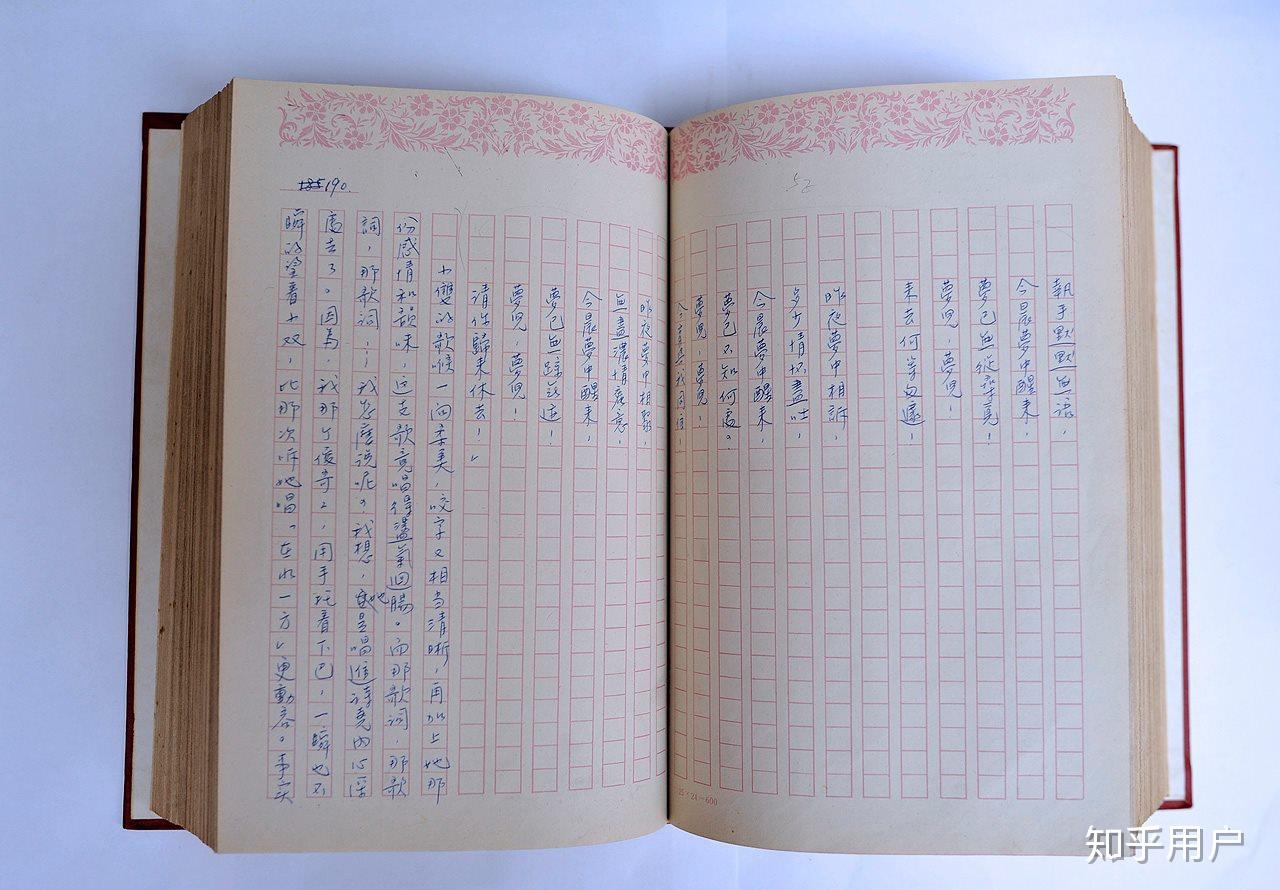 執手默默無語，
今晨夢中醒來，
夢已無從尋覓！
夢兒，夢兒！
來去何等匆遽！
昨夜夢中相訴，
多少情怀盡吐，
今晨夢中醒來，
夢已不知何處。
夢兒，夢兒！
今宵與我同住！
25×24=600
190.
昨夜夢中相聚，
無盡濃情蜜意，
今晨夢中醒來，
夢已無踪無迹！
夢兒，夢兒！
請你歸來休去！」
小雙的歌喉一向柔美，咬字又相当清晰，再加上她那
份感情和韻味，这支歌竟唱得盪氣迴腸。而那歌词，那歌
詞，那歌词……我怎麼說呢？我想，她是唱進詩堯内心深
處去了。因為，我那个傻哥哥，用手托着下巴，一瞬也不
瞬的望着小双，比那次听她唱「在水一方」更動容。事实
知乎用户